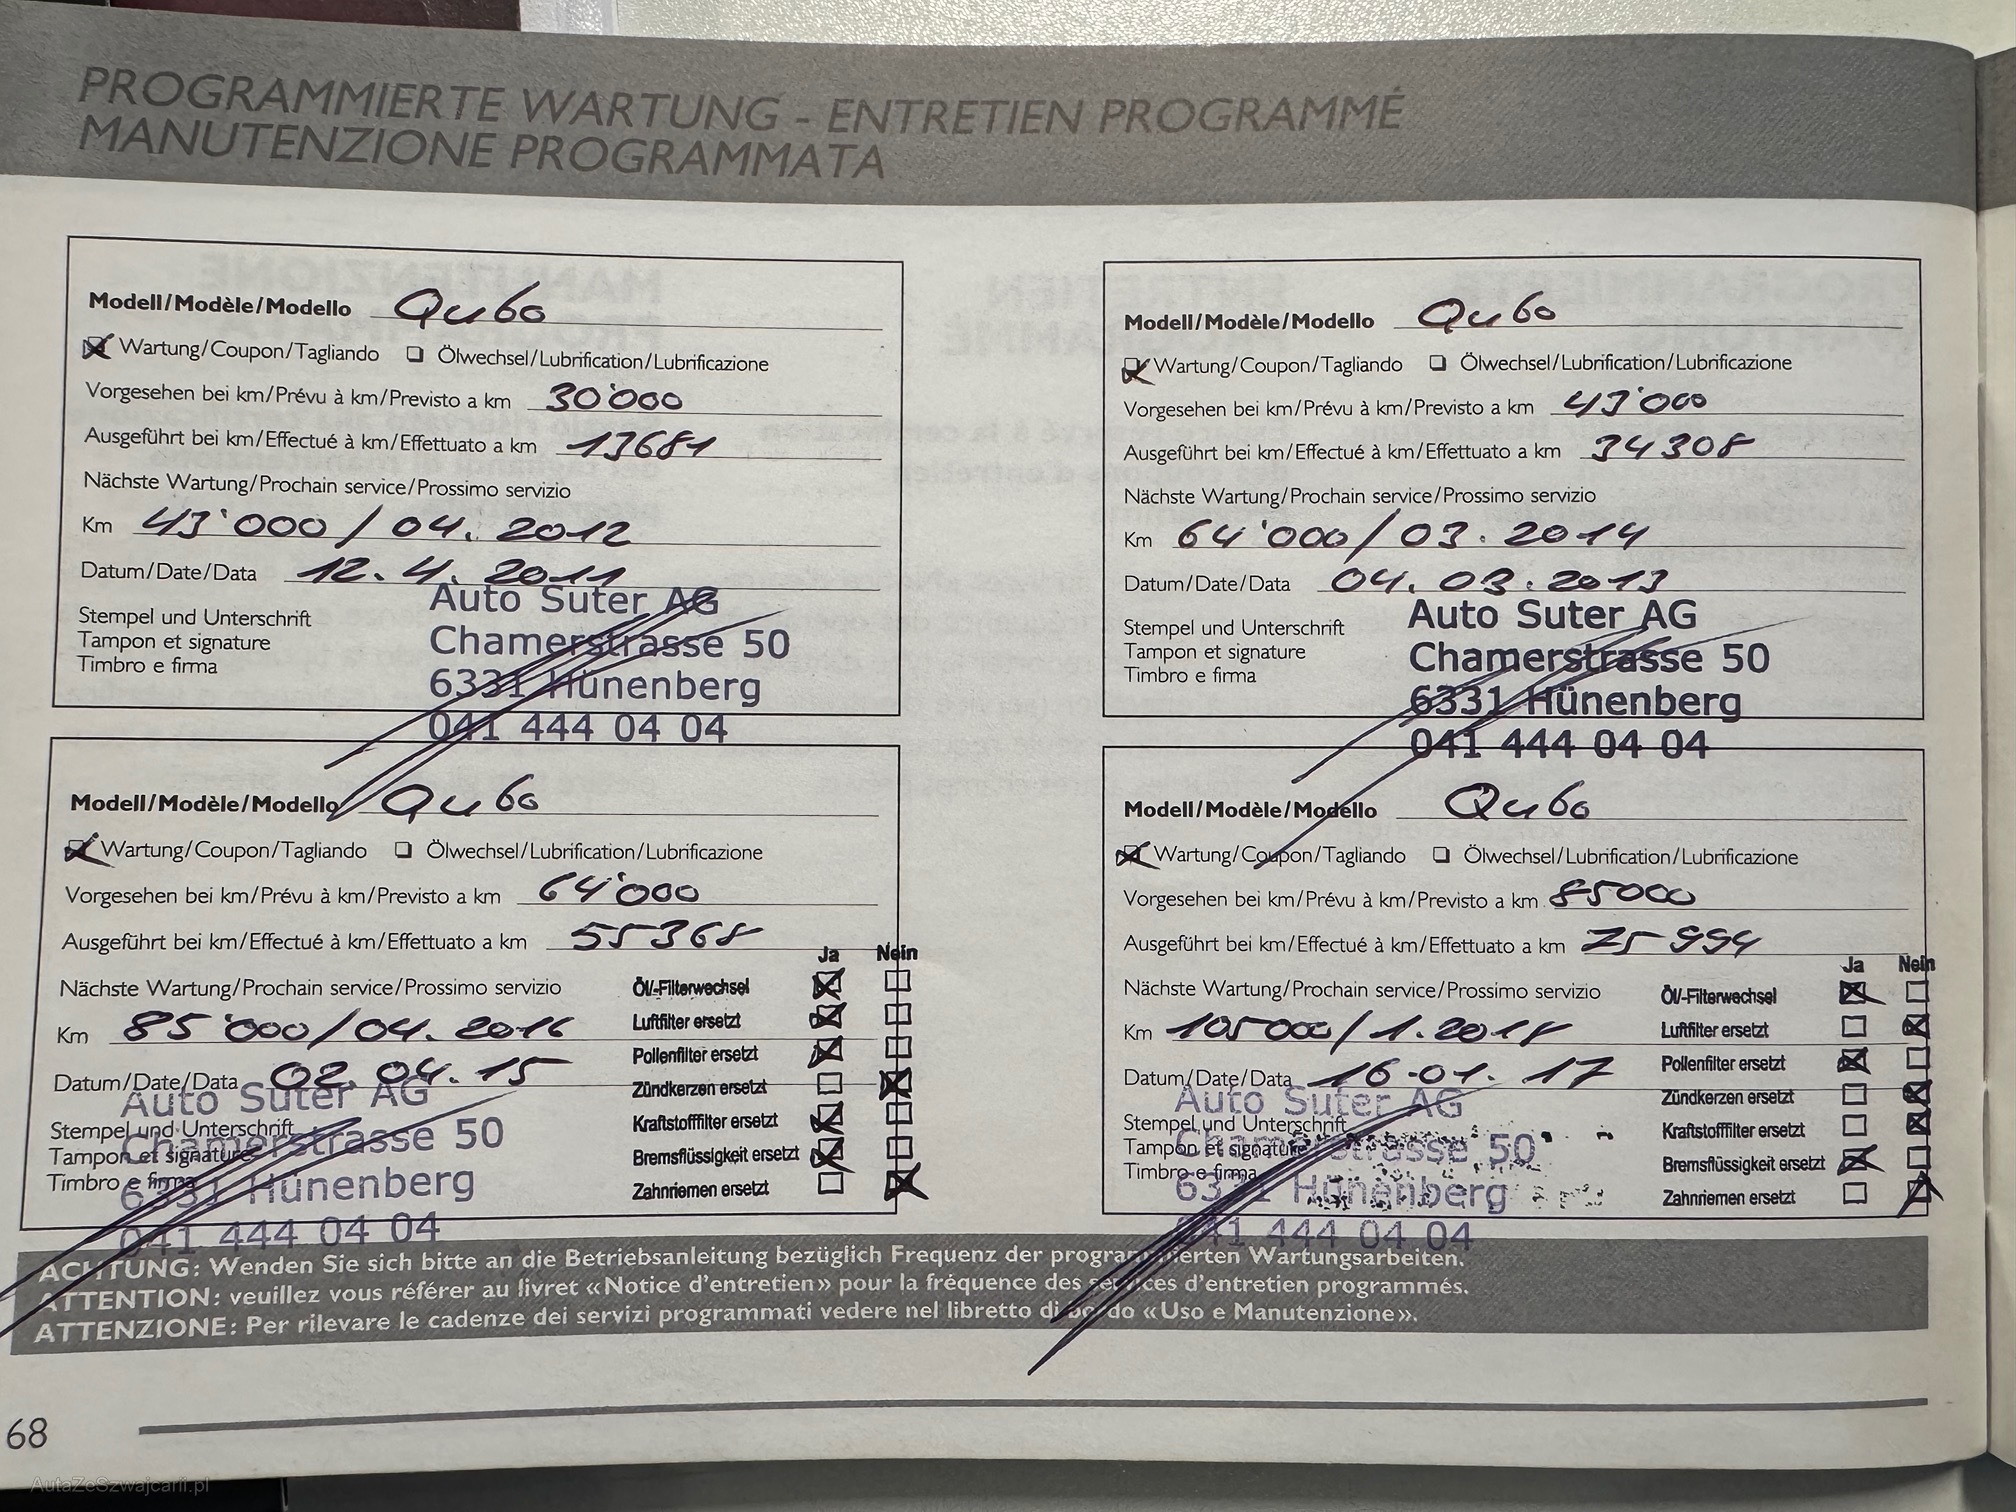 PROGRAMMIERTE WARTUNG - ENTRETIEN PROGRAMMÉ
MANUTENZIONE PROGRAMMATA
Modell/Modèle/Modello Qubo
Wartung/Coupon/Tagliando Ölwechsel/Lubrification/Lubrificazione
Vorgesehen bei km/Prévu à km/Previsto a km 30'000
Ausgeführt bei km/Effectué à km/Effettuato a km 13681
Nächste Wartung/Prochain service/Prossimo servizio
Km 43'000 / 04. 2012
Datum/Date/Data 12. 4. 2011
Stempel und Unterschrift
Tampon et signature
Timbro e firma
Auto Suter AG
Chamerstrasse 50
6331 Hünenberg
041 444 04 04
Modell/Modèle/Modello Qubo
Wartung/Coupon/Tagliando Ölwechsel/Lubrification/Lubrificazione
Vorgesehen bei km/Prévu à km/Previsto a km 43'000
Ausgeführt bei km/Effectué à km/Effettuato a km 34308
Nächste Wartung/Prochain service/Prossimo servizio
Km 64'000 / 03. 2014
Datum/Date/Data 04. 03. 2013
Stempel und Unterschrift
Tampon et signature
Timbro e firma
Auto Suter AG
Chamerstrasse 50
6331 Hünenberg
041 444 04 04
Modell/Modèle/Modello Qubo
Wartung/Coupon/Tagliando Ölwechsel/Lubrification/Lubrificazione
Vorgesehen bei km/Prévu à km/Previsto a km 64'000
Ausgeführt bei km/Effectué à km/Effettuato a km 55368
Nächste Wartung/Prochain service/Prossimo servizio
Km 85'000 / 04. 2016
Datum/Date/Data 02. 04. 15
Stempel und Unterschrift
Tampon et signature
Timbro e firma
Auto Suter AG
Chamerstrasse 50
6331 Hünenberg
041 444 04 04
Ja Nein
Öl/-Filterwechsel
Luftfilter ersetzt
Pollenfilter ersetzt
Zündkerzen ersetzt
Kraftstofffilter ersetzt
Bremsflüssigkeit ersetzt
Zahnriemen ersetzt
Modell/Modèle/Modello Qubo
Wartung/Coupon/Tagliando Ölwechsel/Lubrification/Lubrificazione
Vorgesehen bei km/Prévu à km/Previsto a km 85000
Ausgeführt bei km/Effectué à km/Effettuato a km 75994
Nächste Wartung/Prochain service/Prossimo servizio
Km 105000 / 1. 2018
Datum/Date/Data 16-01. 17
Stempel und Unterschrift
Tampon et signature
Timbro e firma
Auto Suter AG
Chamerstrasse 50
6331 Hünenberg
041 444 04 04
Ja Nein
Öl/-Filterwechsel
Luftfilter ersetzt
Pollenfilter ersetzt
Zündkerzen ersetzt
Kraftstofffilter ersetzt
Bremsflüssigkeit ersetzt
Zahnriemen ersetzt
ACHTUNG: Wenden Sie sich bitte an die Betriebsanleitung bezüglich Frequenz der programmierten Wartungsarbeiten.
ATTENTION: veuillez vous référer au livret «Notice d'entretien» pour la fréquence des services d'entretien programmés.
ATTENZIONE: Per rilevare le cadenze dei servizi programmati vedere nel libretto di bordo «Uso e Manutenzione».
68
AutaZeSzwajcarii.pl